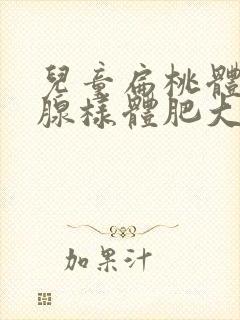 兒童扁桃體
腺樣體肥大
加果汁